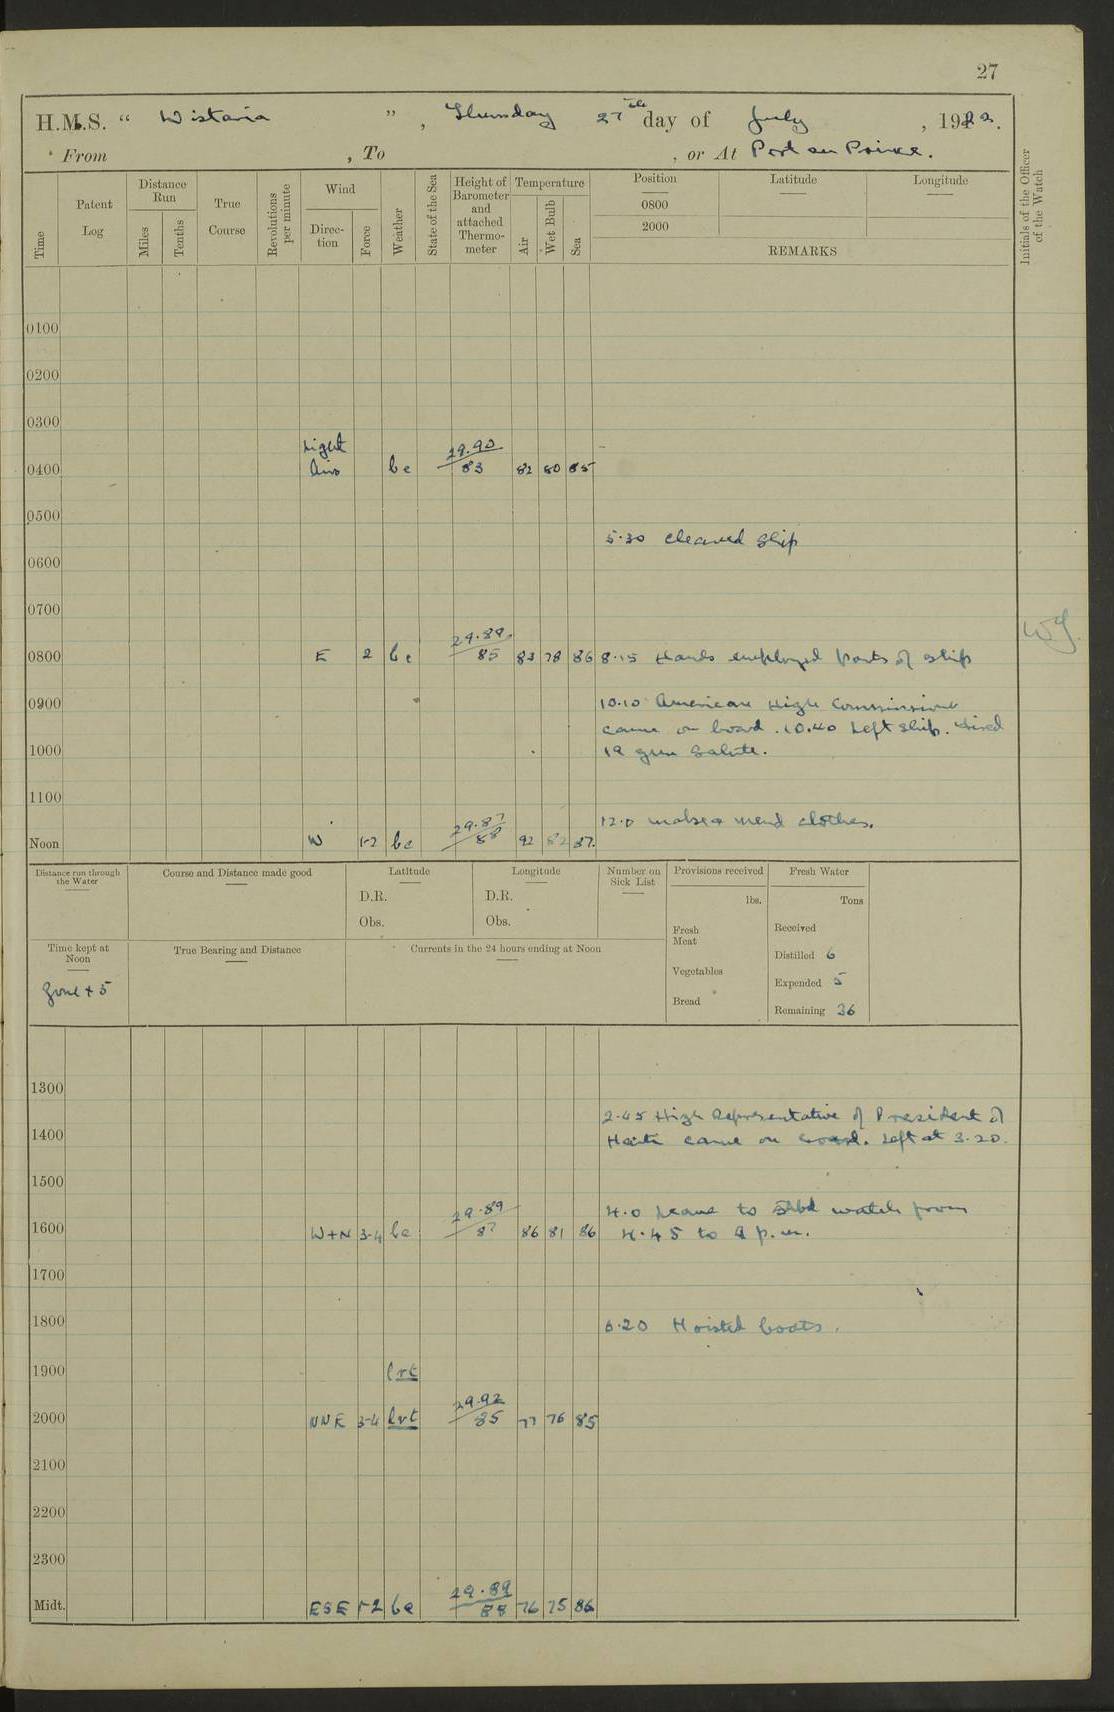 27
H.M.S. " Wistaria ", Thursday 27th day of July, 1922.
From , To , or At Port au Prince.
Time
Patent Log
Distance Run
Miles
Tenths
True Course
Revolutions per minute
Wind
Direc- tion
Force
Weather
State of the Sea
Height of Barometer and attached Thermo- meter
Temperature
Air
Wet Bulb
Sea
Position
0800
2000
Latitude
Longitude
REMARKS
Initials of the Officer of the Watch
0100
0200
0300
Light 29.90
0400 Airs bc 83 82 80 85
0500
5.30 Cleaned Ship
0600
0700
29.89
0800 E 2 bc 85 83 78 86 8.15 Hands employed parts of ship
0900 10.10 American High Commissioner
came on board. 10.40 Left ship. Fired
1000 19 gun Salute.
1100
29.87 12.0 make & mend clothes.
Noon W 1-2 bc 88 92 82 87.
Distance run through the Water
Course and Distance made good
Latitude
D.R.
Obs.
Longitude
D.R.
Obs.
Number on Sick List
Provisions received
lbs.
Fresh Meat
Vegetables
Bread
Fresh Water
Tons
Received
Distilled 6
Expended 5
Remaining 36
Time kept at Noon
Zone + 5
True Bearing and Distance
Currents in the 24 hours ending at Noon
1300
2.45 High Representative of President of
1400 Haiti came on board. Left at 3.20.
1500
29.89 4.0 Leave to Stbd watch from
1600 W+N 3-4 bc 87 86 81 86 4.45 to 9 p.m.
1700
1800 6.20 Hoisted boats.
1900 lrt
29.92
2000 NNE 3-4 lrt 85 77 76 85
2100
2200
2300
29.89
Midt. ESE 1-2 bc 88 76 75 86